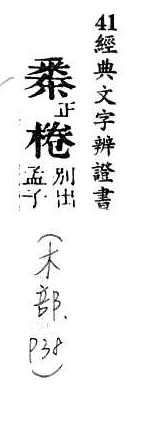 41經典文字辨證書
正棬別出孟子
(木部. P38)